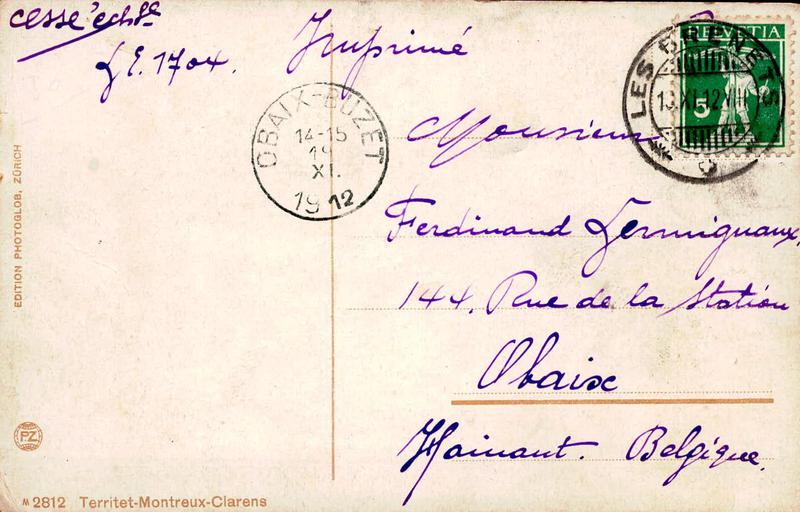 cesse échge
L.E. 1704.
Imprimé
HELVETIA
5
LES BRENETS
XI.12
OBAIX-BUZET
14-15
19
XI.
1912
Monsieur
Ferdinand Lermignaux,
144, Rue de la Station
Obaix
Hainaut. Belgique.
EDITION PHOTOGLOB, ZÜRICH
PZ
2812 Territet-Montreux-Clarens